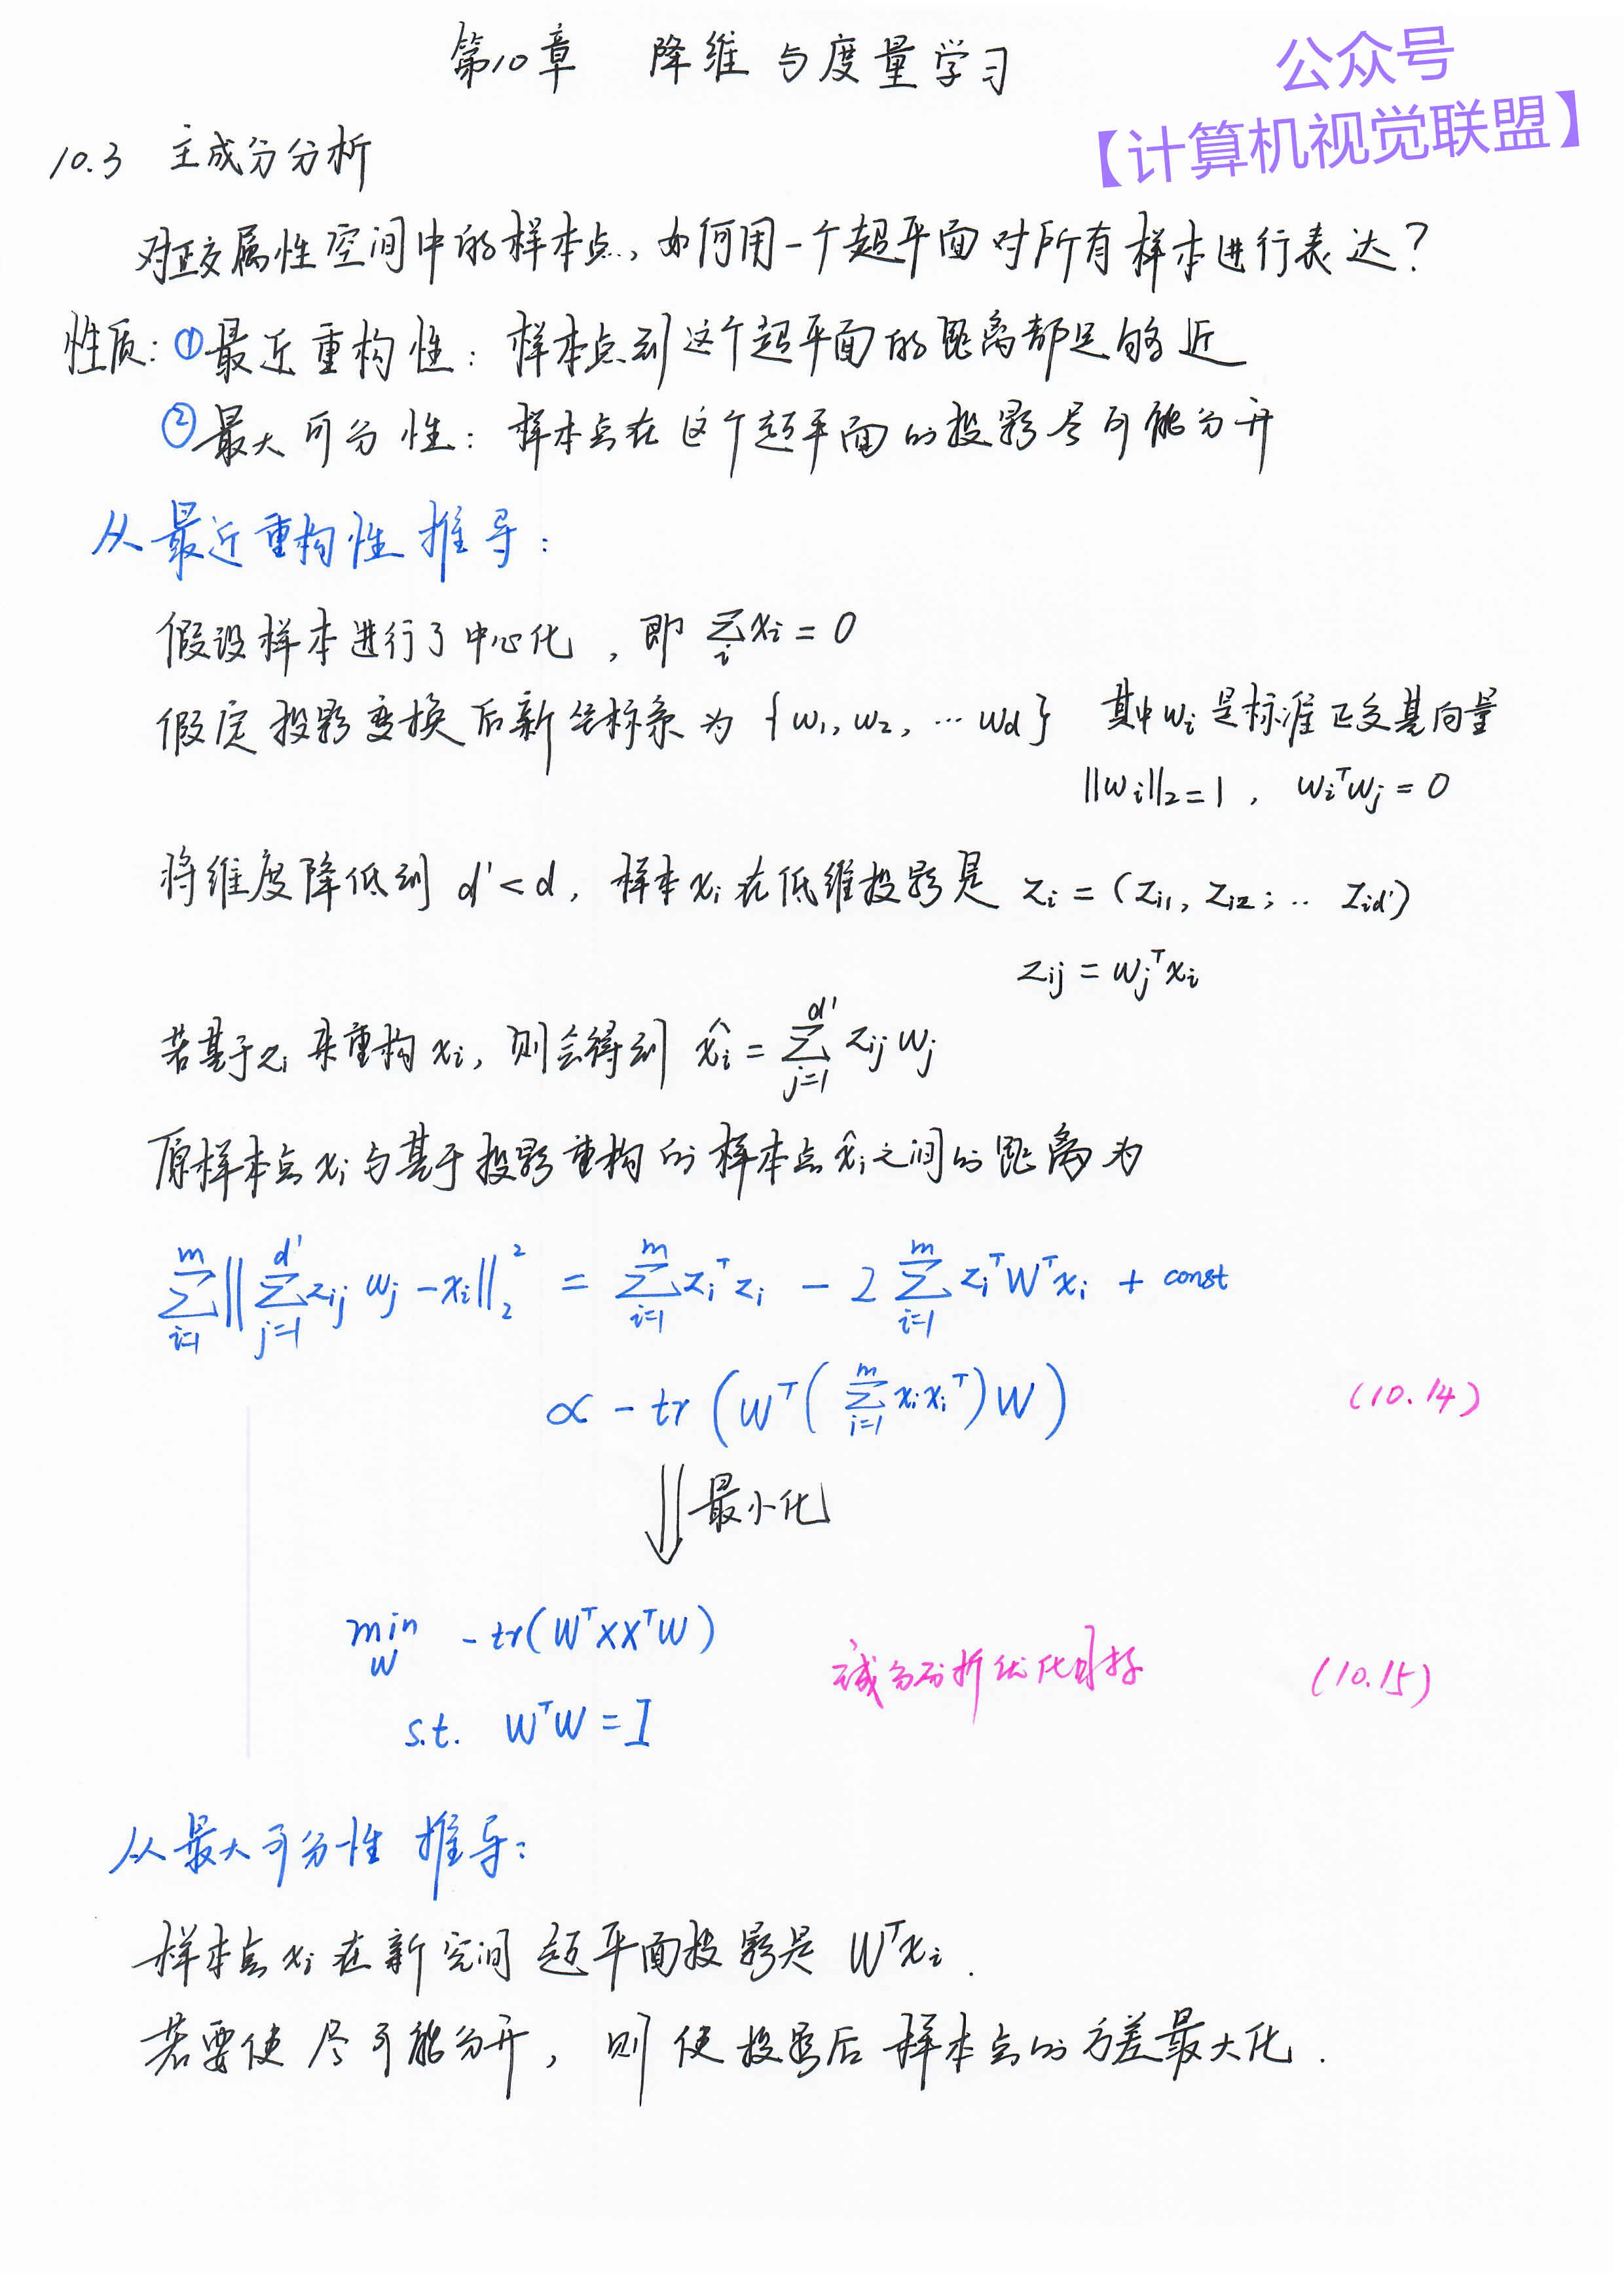 第10章 降维与度量学习
公众号
【计算机视觉联盟】
10.3 主成分分析
对正交属性空间中的样本点，如何用一个超平面对所有样本进行表达？
性质：①最近重构性：样本点到这个超平面的距离都足够近
②最大可分性：样本点在这个超平面的投影尽可能分开
从最近重构性推导：
假设样本进行了中心化，即 ∑_i x_i = 0
假定投影变换后新坐标系为 {w₁, w₂, … w_d} 其中 w_i 是标准正交基向量
||w_i||₂ = 1, w_iᵀw_j = 0
将维度降低到 d' < d，样本 x_i 在低维投影是 z_i = (z_i1, z_i2; ‥ z_id')
z_ij = w_jᵀx_i
若基于 z_i 来重构 x_i，则会得到 x̂_i = ∑_{j=1}^{d'} z_ij w_j
原样本点 x_i 与基于投影重构的样本点 x̂_i 之间的距离为
∑_{i=1}^{m} ||∑_{j=1}^{d'} z_ij w_j − x_i||₂² = ∑_{i=1}^{m} z_iᵀz_i − 2∑_{i=1}^{m} z_iᵀWᵀx_i + const
∝ − tr(Wᵀ(∑_{i=1}^{m} x_i x_iᵀ)W) (10.14)
⇓ 最小化
min_W − tr(WᵀXXᵀW)
主成分分析优化目标 (10.15)
s.t. WᵀW = I
从最大可分性推导：
样本点 x_i 在新空间超平面投影是 Wᵀx_i.
若要使尽可能分开，则使投影后样本点的方差最大化.